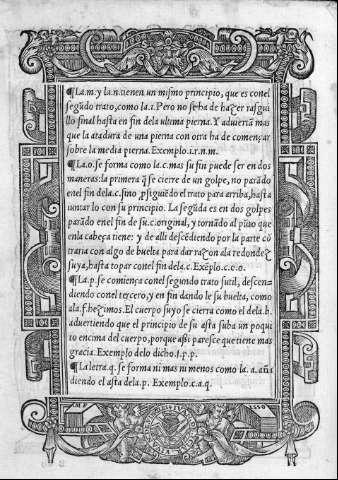 ¶La.m.y la.n.tienen un mismo principio, que es conel
segũdo trato, como la.i. Pero no se ha de hazer rasgui
llo final hasta en fin dela ultima pierna. Y advierta mas
que la atadura de una pierna con otra ha de començar
sobre la media pierna. Exemplo.i.r.n.m.
¶La.o. se forma como la.c. mas su fin puede ser en dos
maneras: la primera q̃ se cierre de un golpe, no parãdo
enel fin dela.c. sino ꝓsiguiẽdo el trato para arriba, hasta
iuntar lo con su principio. La segũda es en dos golpes
parãdo enel fin de su.c. original, y tornãdo al pũto que
enla cabeça tiene: y de alli descẽdiendo por la parte cõ
traria con algo de buelta para dar razon ala redondez
suya, hasta topar conel fin dela.c. Exẽplo.c.c.o.
¶La.p. se comiença conel segundo trato sutil, descen-
diendo conel tercero, y en fin dando le su buelta, como
ala.f. hezimos. El cuerpo suyo se cierra como el dela.b.
advertiendo que el principio de su asta suba un poqui
to encima del cuerpo, porque assi paresce que tiene mas
gracia. Exemplo delo dicho.ſ.p.p.
¶La letra.q. se forma ni mas ni menos como la.a. aña
diendo el asta dela.p. Exemplo.c.a.q.